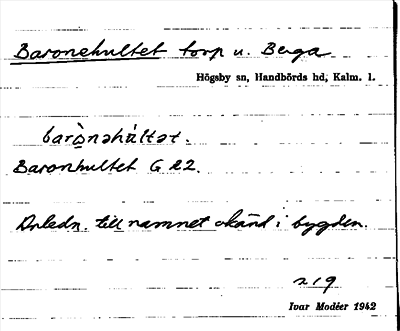 Baronehultet torp u. Berga
Högsby sn, Handbörds hd, Kalm. l.
barònəhúltət.
Baronhultet G 22.
Anledn. till namnet okänd i bygden.
219
Ivar Modéer 1942